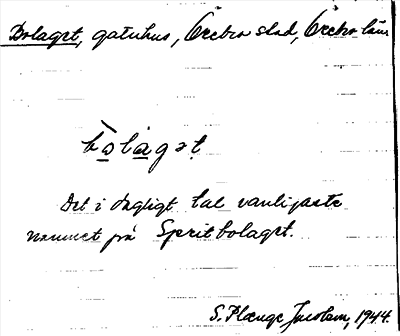 Bolaget, gatuhus, Örebro stad, Örebro län
bòlágət
Det i dagligt tal vanligaste
namnet på Spritbolaget.
S. Plænge Jacobson, 1944.